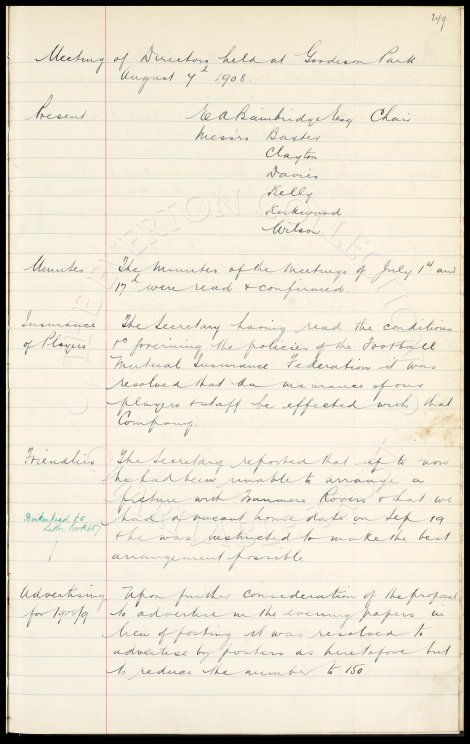 249
Meeting of Directors held at Goodison Park
August 7th 1908.
Present E A Bainbridge Esq Chair
Messrs Baxter
Clayton
Davies
Kelly
Kirkwood
Wilson
Minutes The minutes of the meetings of July 1st and
17th were read & confirmed.
Insurance The Secretary having read the conditions
of Players governing the policies of the Football
Mutual Insurance Federation it was
resolved that insurance of our
players & staff be effected with that
Company.
Friendlies The Secretary reported that up to now
he had been unable to arrange a
fixture with Tranmere Rovers & that we
Birkenhead had a vacant home date on Sep 19
Letter book & he was instructed to make the best
arrangement possible
Advertising Upon further consideration of the proposal
for 1908/9 to advertise in the evening papers in
lieu of posting it was resolved to
advertise by posters as heretofore but
to reduce the number to 150
EVERTON COLLECTION